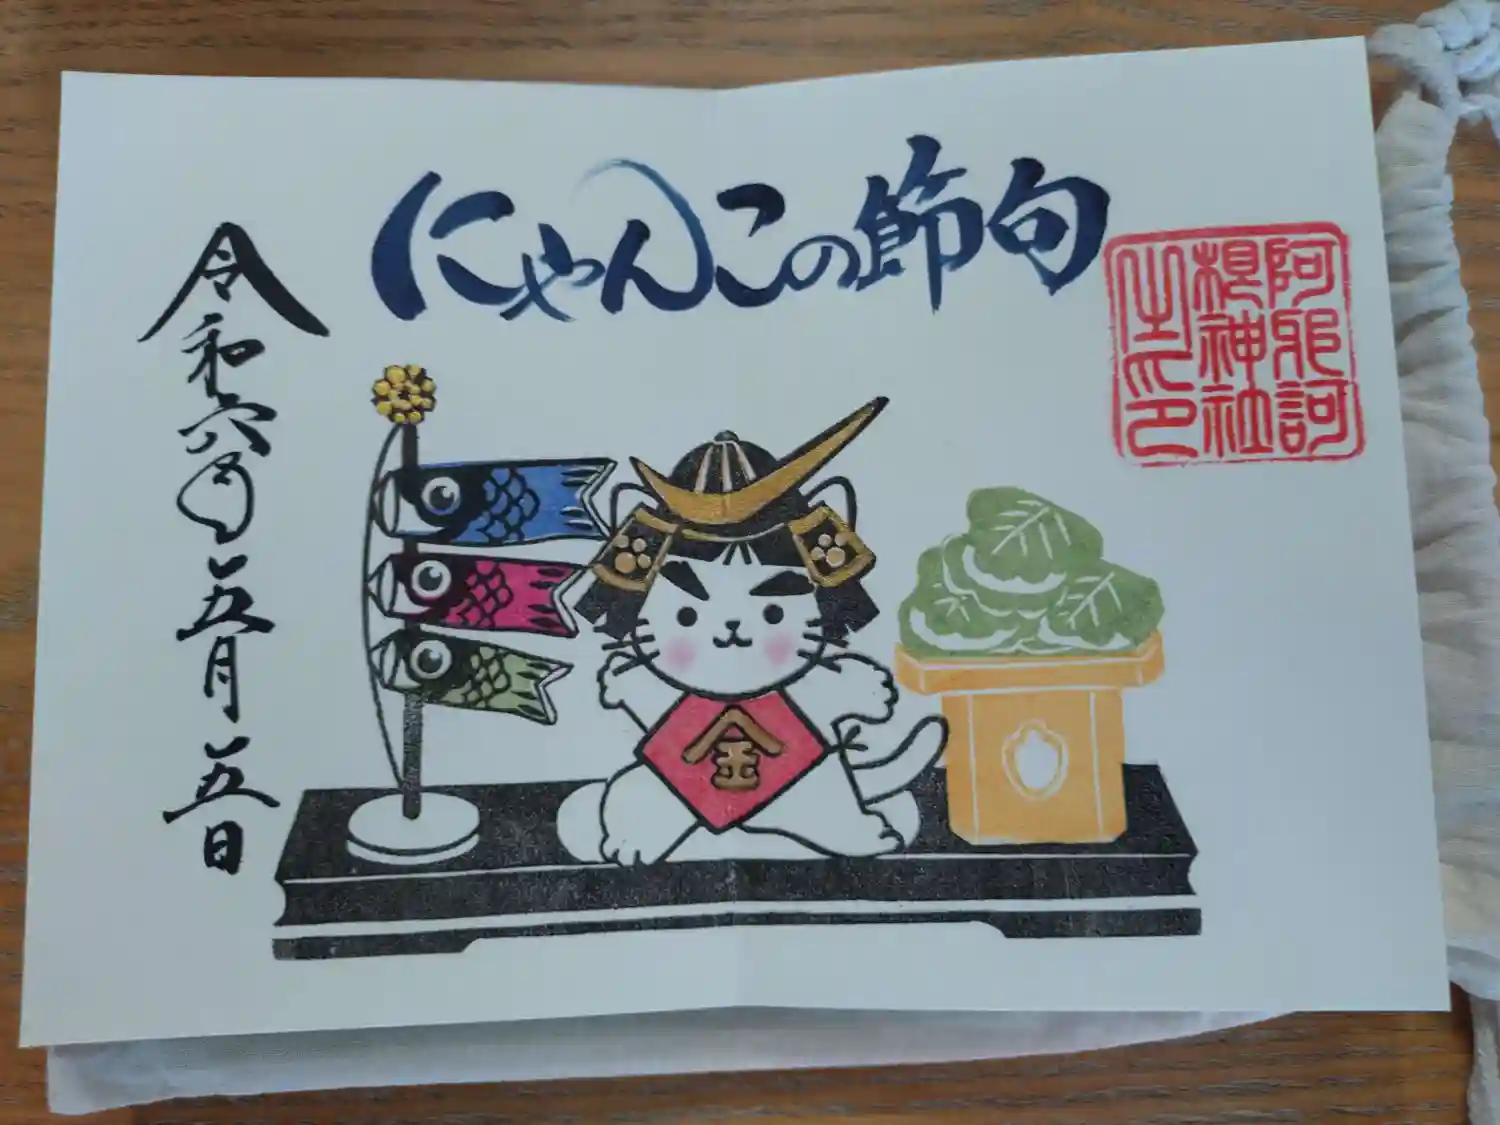 にゃんこの節句
阿邪訶
根神社
之印
令和六年五月五日
金